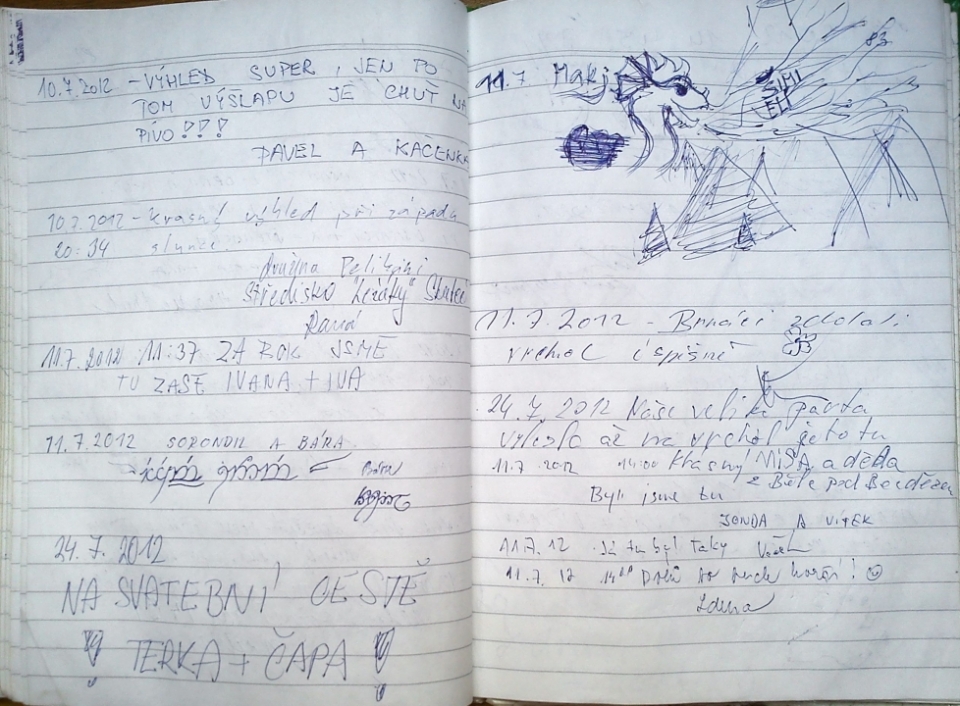 10.7.2012 - VÝHLED SUPER, JEN PO
TOM VÝŠLAPU JE CHUŤ NA
PIVO!!!
PAVEL A KAČENKA
10.7.2012 - krásný výhled při západu
20:34 slunce
družina Pelikáni
Středisko "Ležáky" Skuteč
Raná
11.7.2012 11:37 ZA ROK JSME
TU ZASE IVANA + IVA
11.7.2012 A BÁRA
24.7.2012
NA SVATEBNÍ CESTĚ
! TERKA + ČAPA !
11.7 Makj
SIMI
ELI
11.7.2012 - Brňáci zdolali
vrchol úspěšně
24.7.2012 Naše veliká parta
vylezla až na vrchol je to tu
11.7.2012 14:00 krásný MÍŠA a děda
z Bělé pod Bezdězem
Byli jsme tu
JONDA A VÍTEK
11.7.12 Já tu byl taky
11.7.12 14 horší! ☺
Zdena